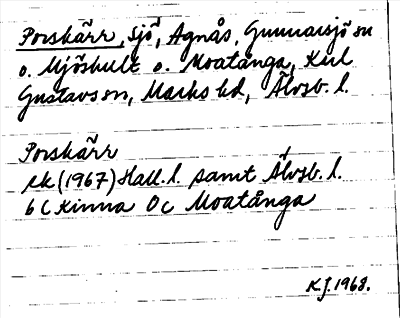 Porskärr, sjö, Agnås, Gunnarsjö sn
o. Mjöshult o. Moatånga, Kul
Gustavsson, Marks hd, Älvsb. l.
Porskärr
ek (1967) Hall. l. samt Älvsb. l.
6 C Kinna 0c Moatånga
K.J. 1968.